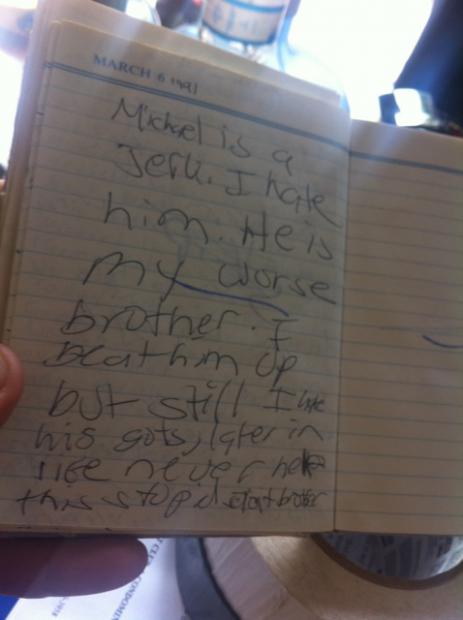 MARCH 6 1991
Michael is a
Jerk. I hate
him. He is
my worse
brother. I
beat him up
but still I hate
his gots, later in
life never help
this stopid brother